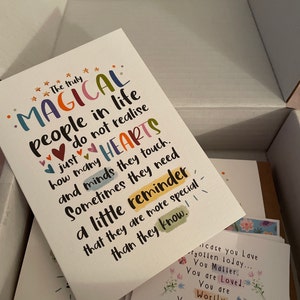 The truly
MAGICAL
people in life
do not realise
just how many HEARTS
and minds they touch.
Sometimes they need
a little reminder
that they are more special
than they know.
case you Love
Today...
You Matter
You are Loved
You are